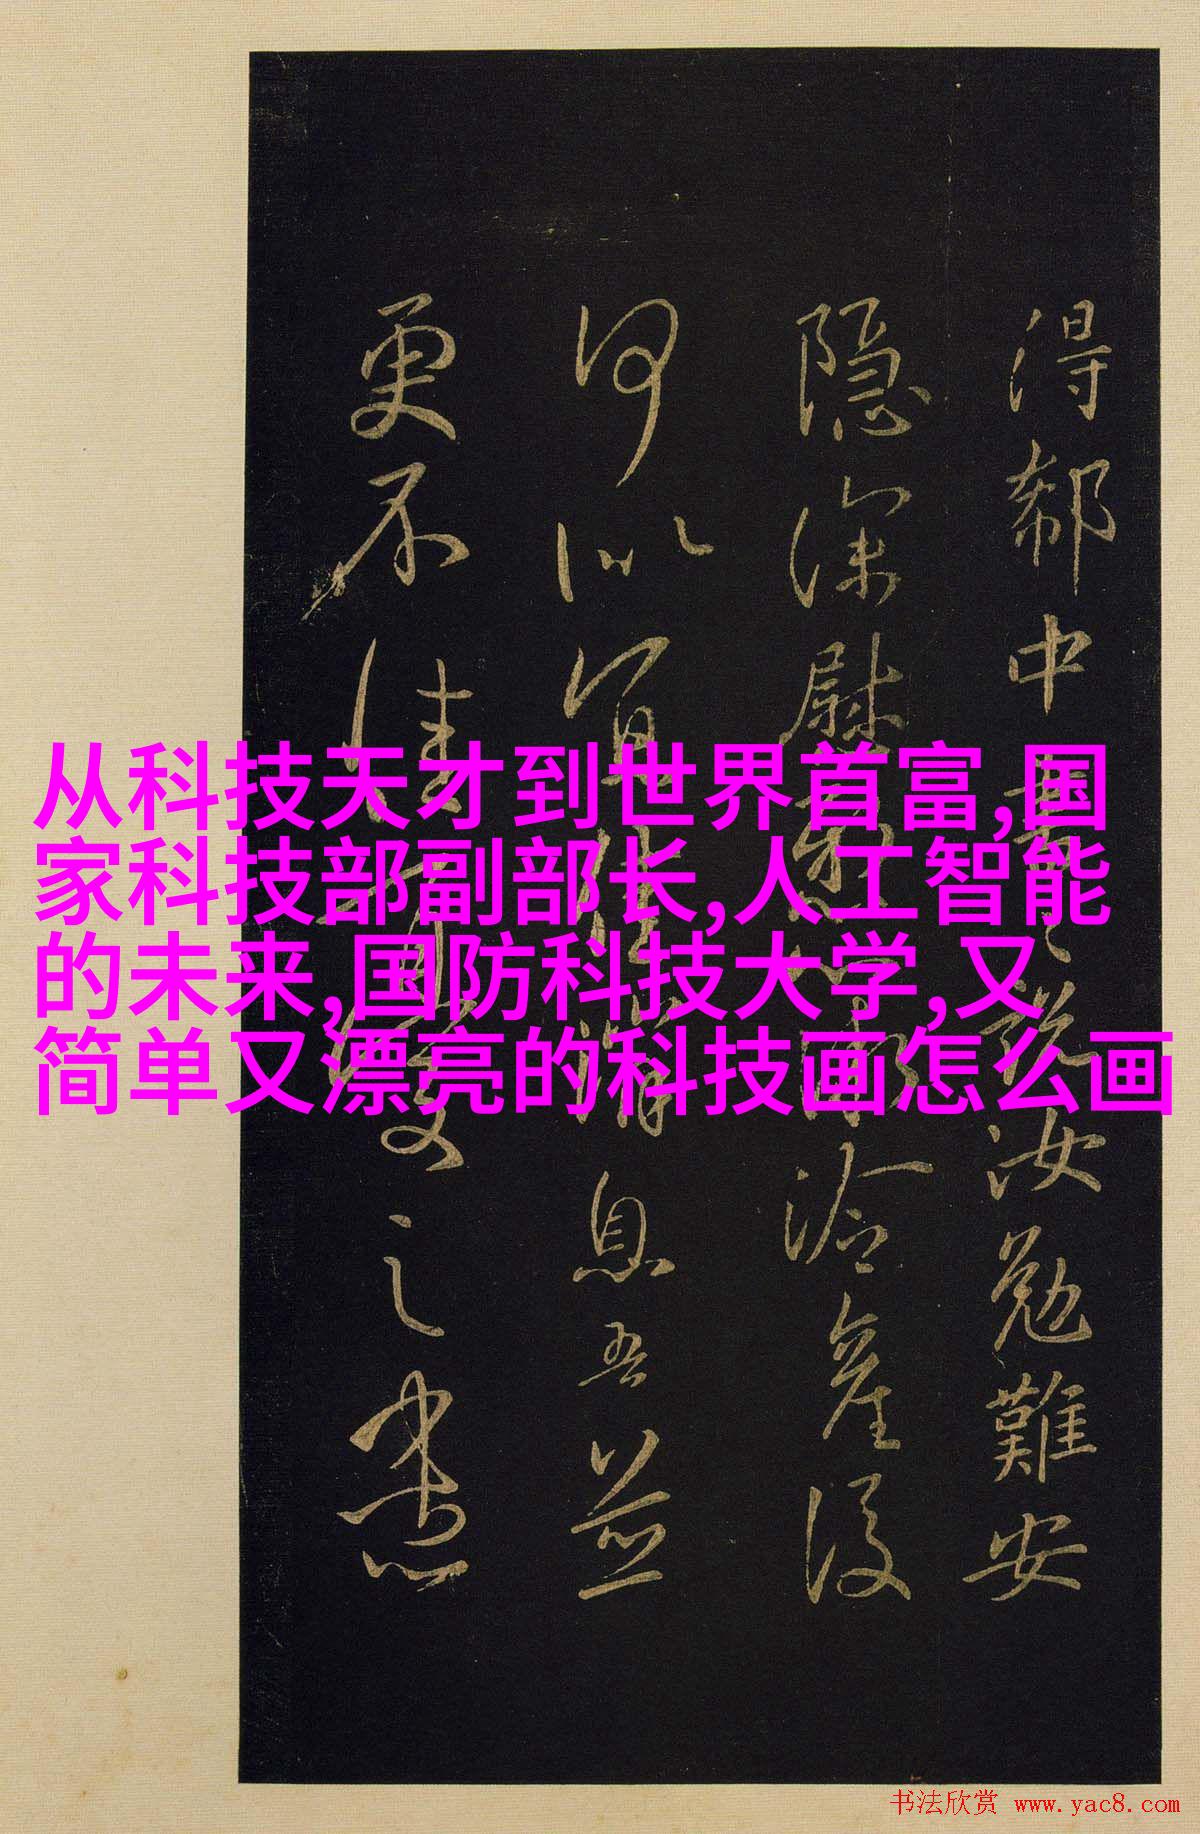 得郗中書說汝勉難安
隱深慰冷產後
何以宜佳消息吾並
更不佳憂之
从科技天才到世界首富,国
家科技部副部长,人工智能
的未来,国防科技大学,又
简单又漂亮的科技画怎么画
书法欣赏 www.yac8.com